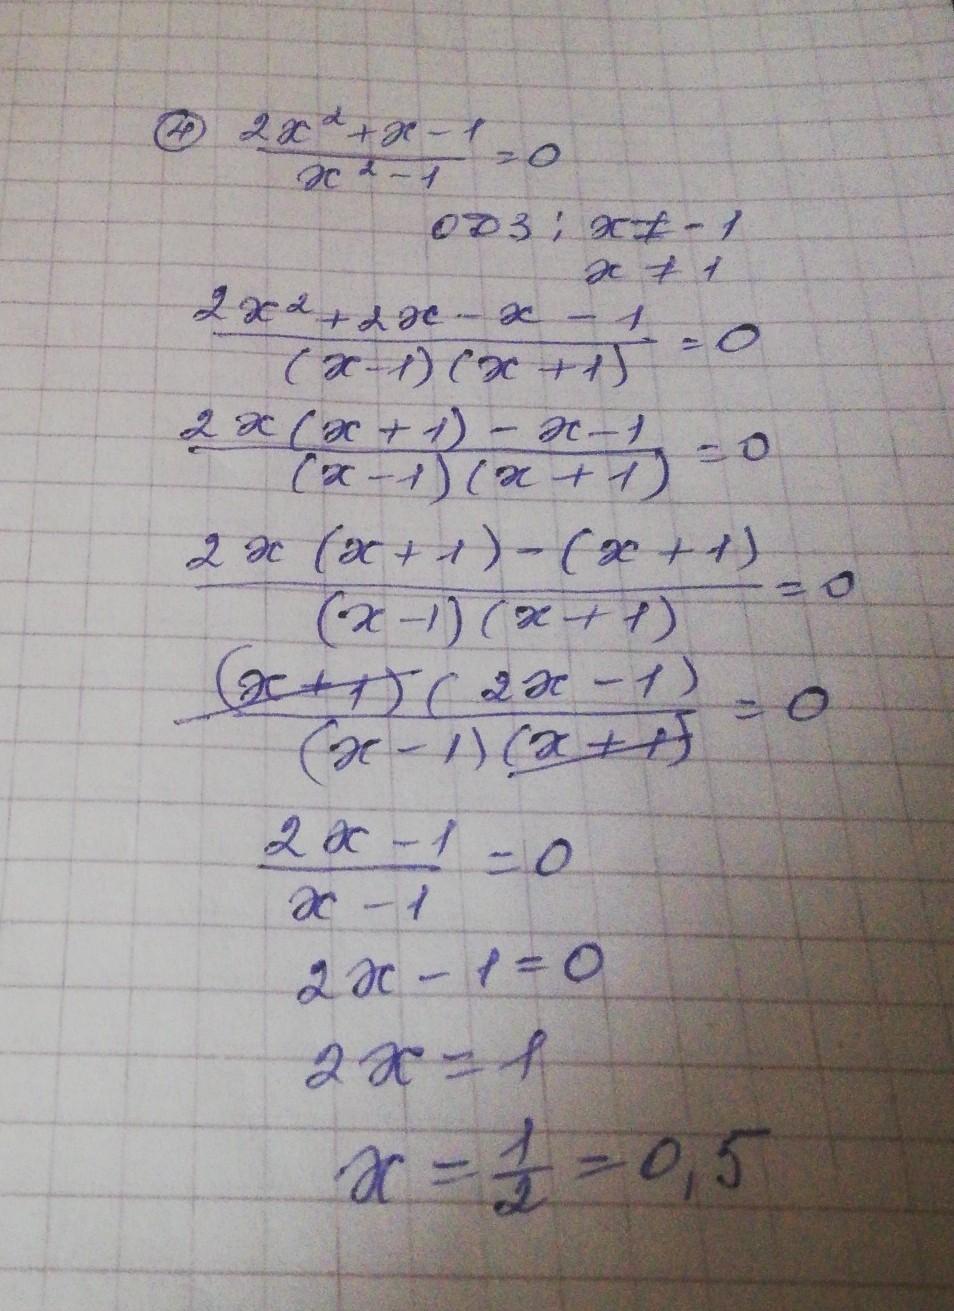 ④ (2x²+x-1)/(x²-1) = 0
ОДЗ: x ≠ -1
x ≠ 1
(2x²+2x-x-1)/((x-1)(x+1)) = 0
(2x(x+1)-x-1)/((x-1)(x+1)) = 0
(2x(x+1)-(x+1))/((x-1)(x+1)) = 0
((x+1)(2x-1))/((x-1)(x+1)) = 0
(2x-1)/(x-1) = 0
2x-1=0
2x=1
x = 1/2 = 0,5